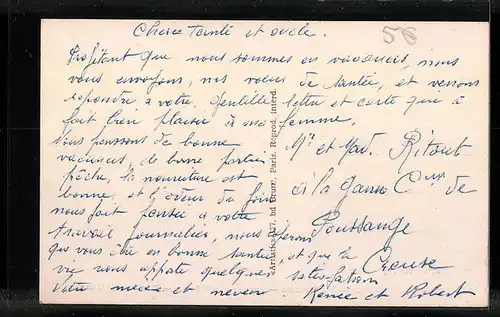 Chère Tante et oncle.
58
Profitant que nous sommes en vacances, nous
vous envoyons, nos vœux de santée, et venons
répondre, a votre gentille lettre et carte que à
fait bien plaisir à ma femme.
Nous passons de bonne
vacances, de bonne parties
pêche, la nourriture est
bonne, et l'odeur du foin
nous fait pensée a votre
travail journalier, nous
que vous être en bonne santée, et que la
vie nous apporte quelques satisfation
Votre niece et neveu Renée et Robert
Mr et Mad. Ritout
à la Ganne Cne de
Poussange
Creuse
bd Brune, Paris. Reprod. interd.